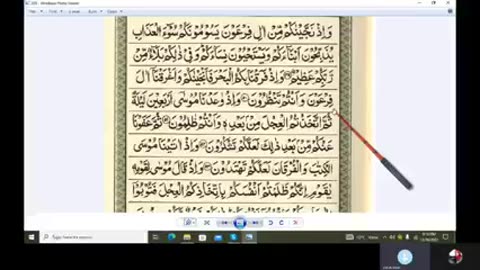 Windows Photo Viewer
وَاِذْ نَجَّيْنٰكُمْ مِّنْ اٰلِ فِرْعَوْنَ يَسُوْمُوْنَكُمْ سُوْٓءَ الْعَذَابِ
يُذَبِّحُوْنَ اَبْنَآءَكُمْ وَيَسْتَحْيُوْنَ نِسَآءَكُمْ وَفِيْ ذٰلِكُمْ بَلَآءٌ مِّنْ
رَّبِّكُمْ عَظِيْمٌ وَاِذْ فَرَقْنَا بِكُمُ الْبَحْرَ فَاَنْجَيْنٰكُمْ وَاَغْرَقْنَآ اٰلَ
فِرْعَوْنَ وَاَنْتُمْ تَنْظُرُوْنَ وَاِذْ وٰعَدْنَا مُوْسٰٓى اَرْبَعِيْنَ لَيْلَةً
ثُمَّ اتَّخَذْتُمُ الْعِجْلَ مِنْۢ بَعْدِهٖ وَاَنْتُمْ ظٰلِمُوْنَ ثُمَّ عَفَوْنَا
عَنْكُمْ مِّنْۢ بَعْدِ ذٰلِكَ لَعَلَّكُمْ تَشْكُرُوْنَ وَاِذْ اٰتَيْنَا مُوْسَى
الْكِتٰبَ وَالْفُرْقَانَ لَعَلَّكُمْ تَهْتَدُوْنَ وَاِذْ قَالَ مُوْسٰى لِقَوْمِهٖ
يٰقَوْمِ اِنَّكُمْ ظَلَمْتُمْ اَنْفُسَكُمْ بِاتِّخَاذِكُمُ الْعِجْلَ فَتُوْبُوْٓا
Type here to search